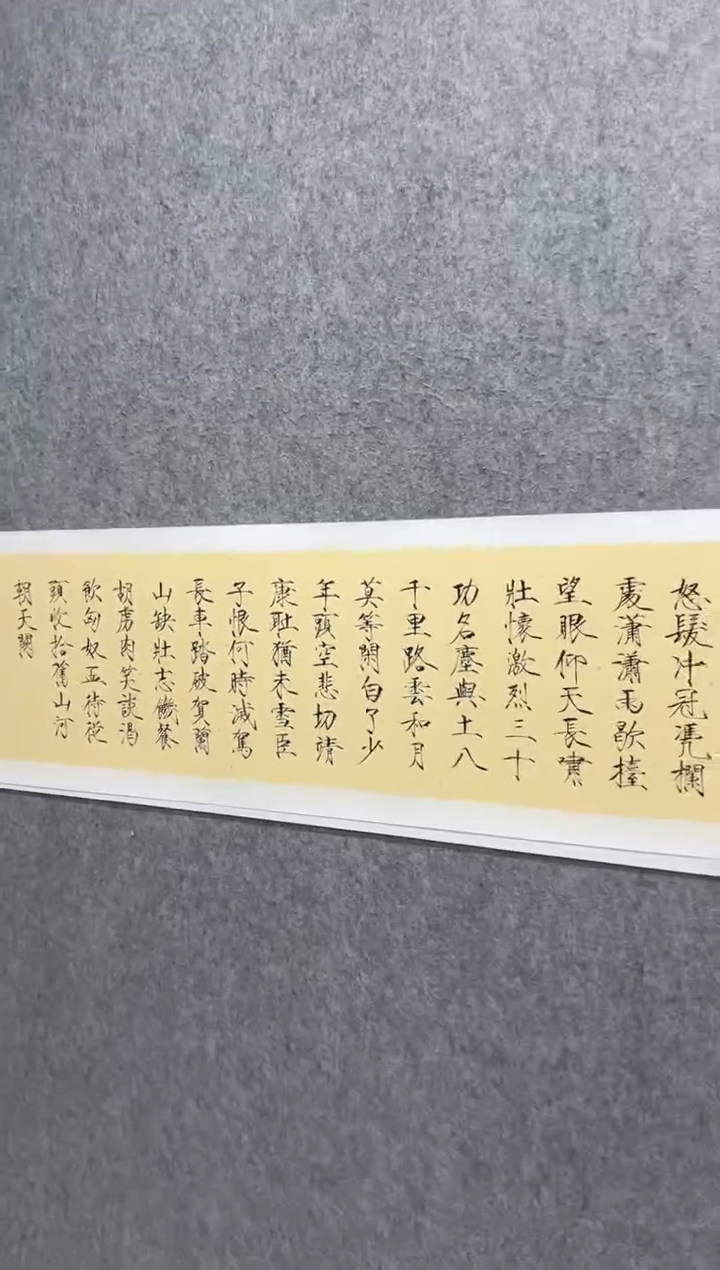 怒髮冲冠凭欄
處瀟瀟雨歇擡
望眼仰天長嘯
壯懷激烈三十
功名塵與土八
千里路雲和月
莫等閑白了少
年頭空悲切靖
康耻猶未雪臣
子恨何時滅駕
長車踏破賀蘭
山缺壯志饑餐
胡虜肉笑談渴
飲匈奴血待從
頭收拾舊山河
朝天闕